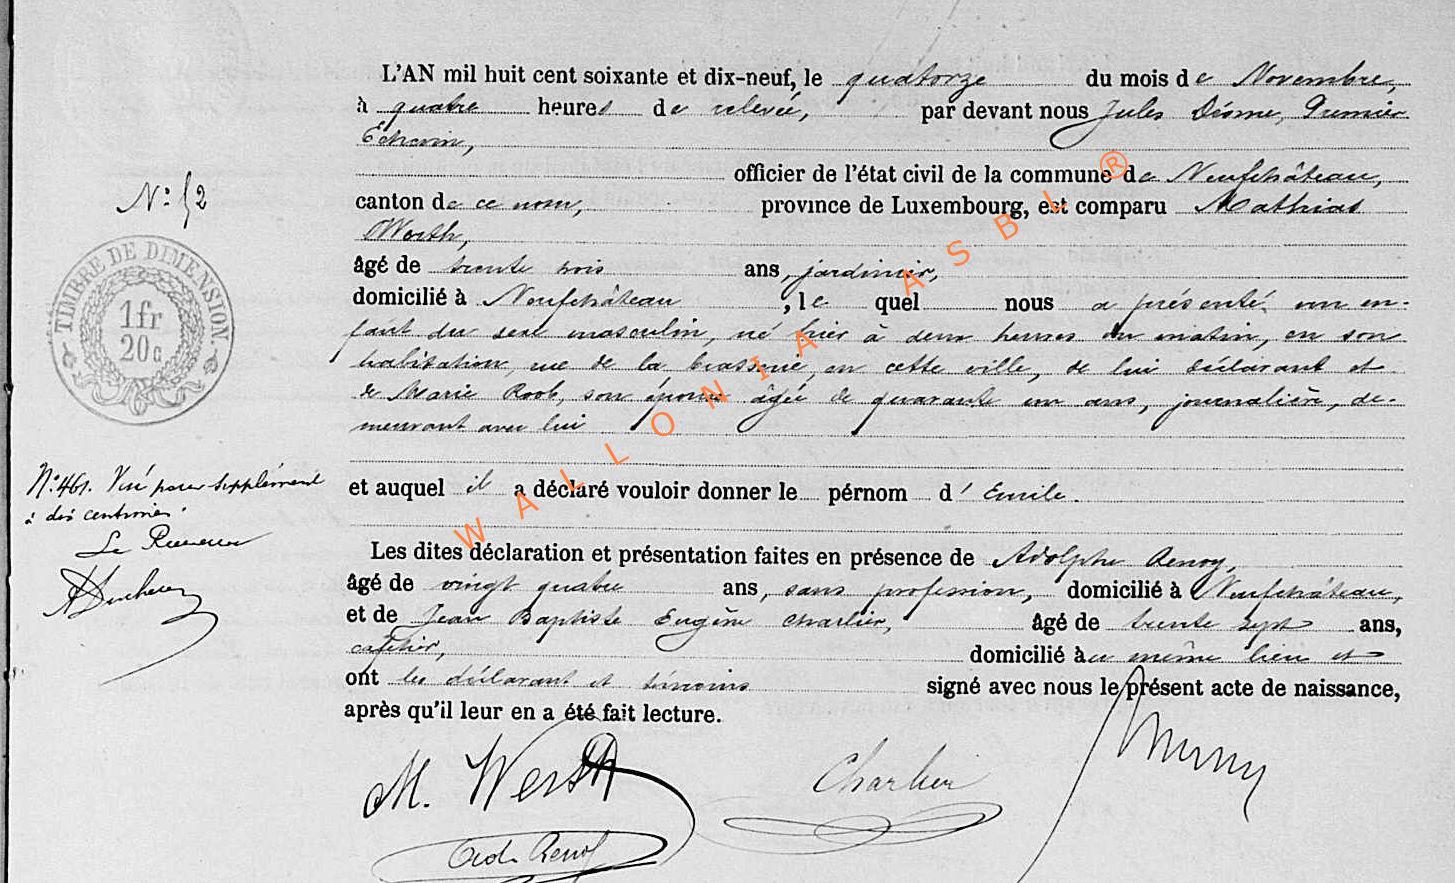 L'AN mil huit cent soixante et dix-neuf, le quatorze du mois de Novembre,
à quatre heures de relevée, par devant nous Jules Diome, Premier
Échevin,
officier de l'état civil de la commune de Neufchâteau,
canton de ce nom, province de Luxembourg, est comparu Mathias
Werth,
âgé de trente trois ans, jardinier,
domicilié à Neufchâteau, lequel nous a présenté un en-
fant du sexe masculin, né hier à deux heures du matin, en son
habitation, rue de la brasserie, en cette ville, de lui déclarant et
de Marie Roob, son épouse âgée de quarante un ans, journalière, de-
meurant avec lui
et auquel il a déclaré vouloir donner le pérnom d'Emile.
Les dites déclaration et présentation faites en présence de Adolphe Renoy,
âgé de vingt quatre ans, sans profession, domicilié à Neufchâteau,
et de Jean Baptiste Eugène Charlier, âgé de trente sept ans,
cafetier, domicilié au même lieu et
ont les déclarant et témoins signé avec nous le présent acte de naissance,
après qu'il leur en a été fait lecture.
N° 52
TIMBRE DE DIMENSION.
1fr
20c
N° 461. Visé pour supplément
à dix centimes.
Le Receveur
M. Werth
Charlier
Ad. Renoy
WALLONIA ASBL ®